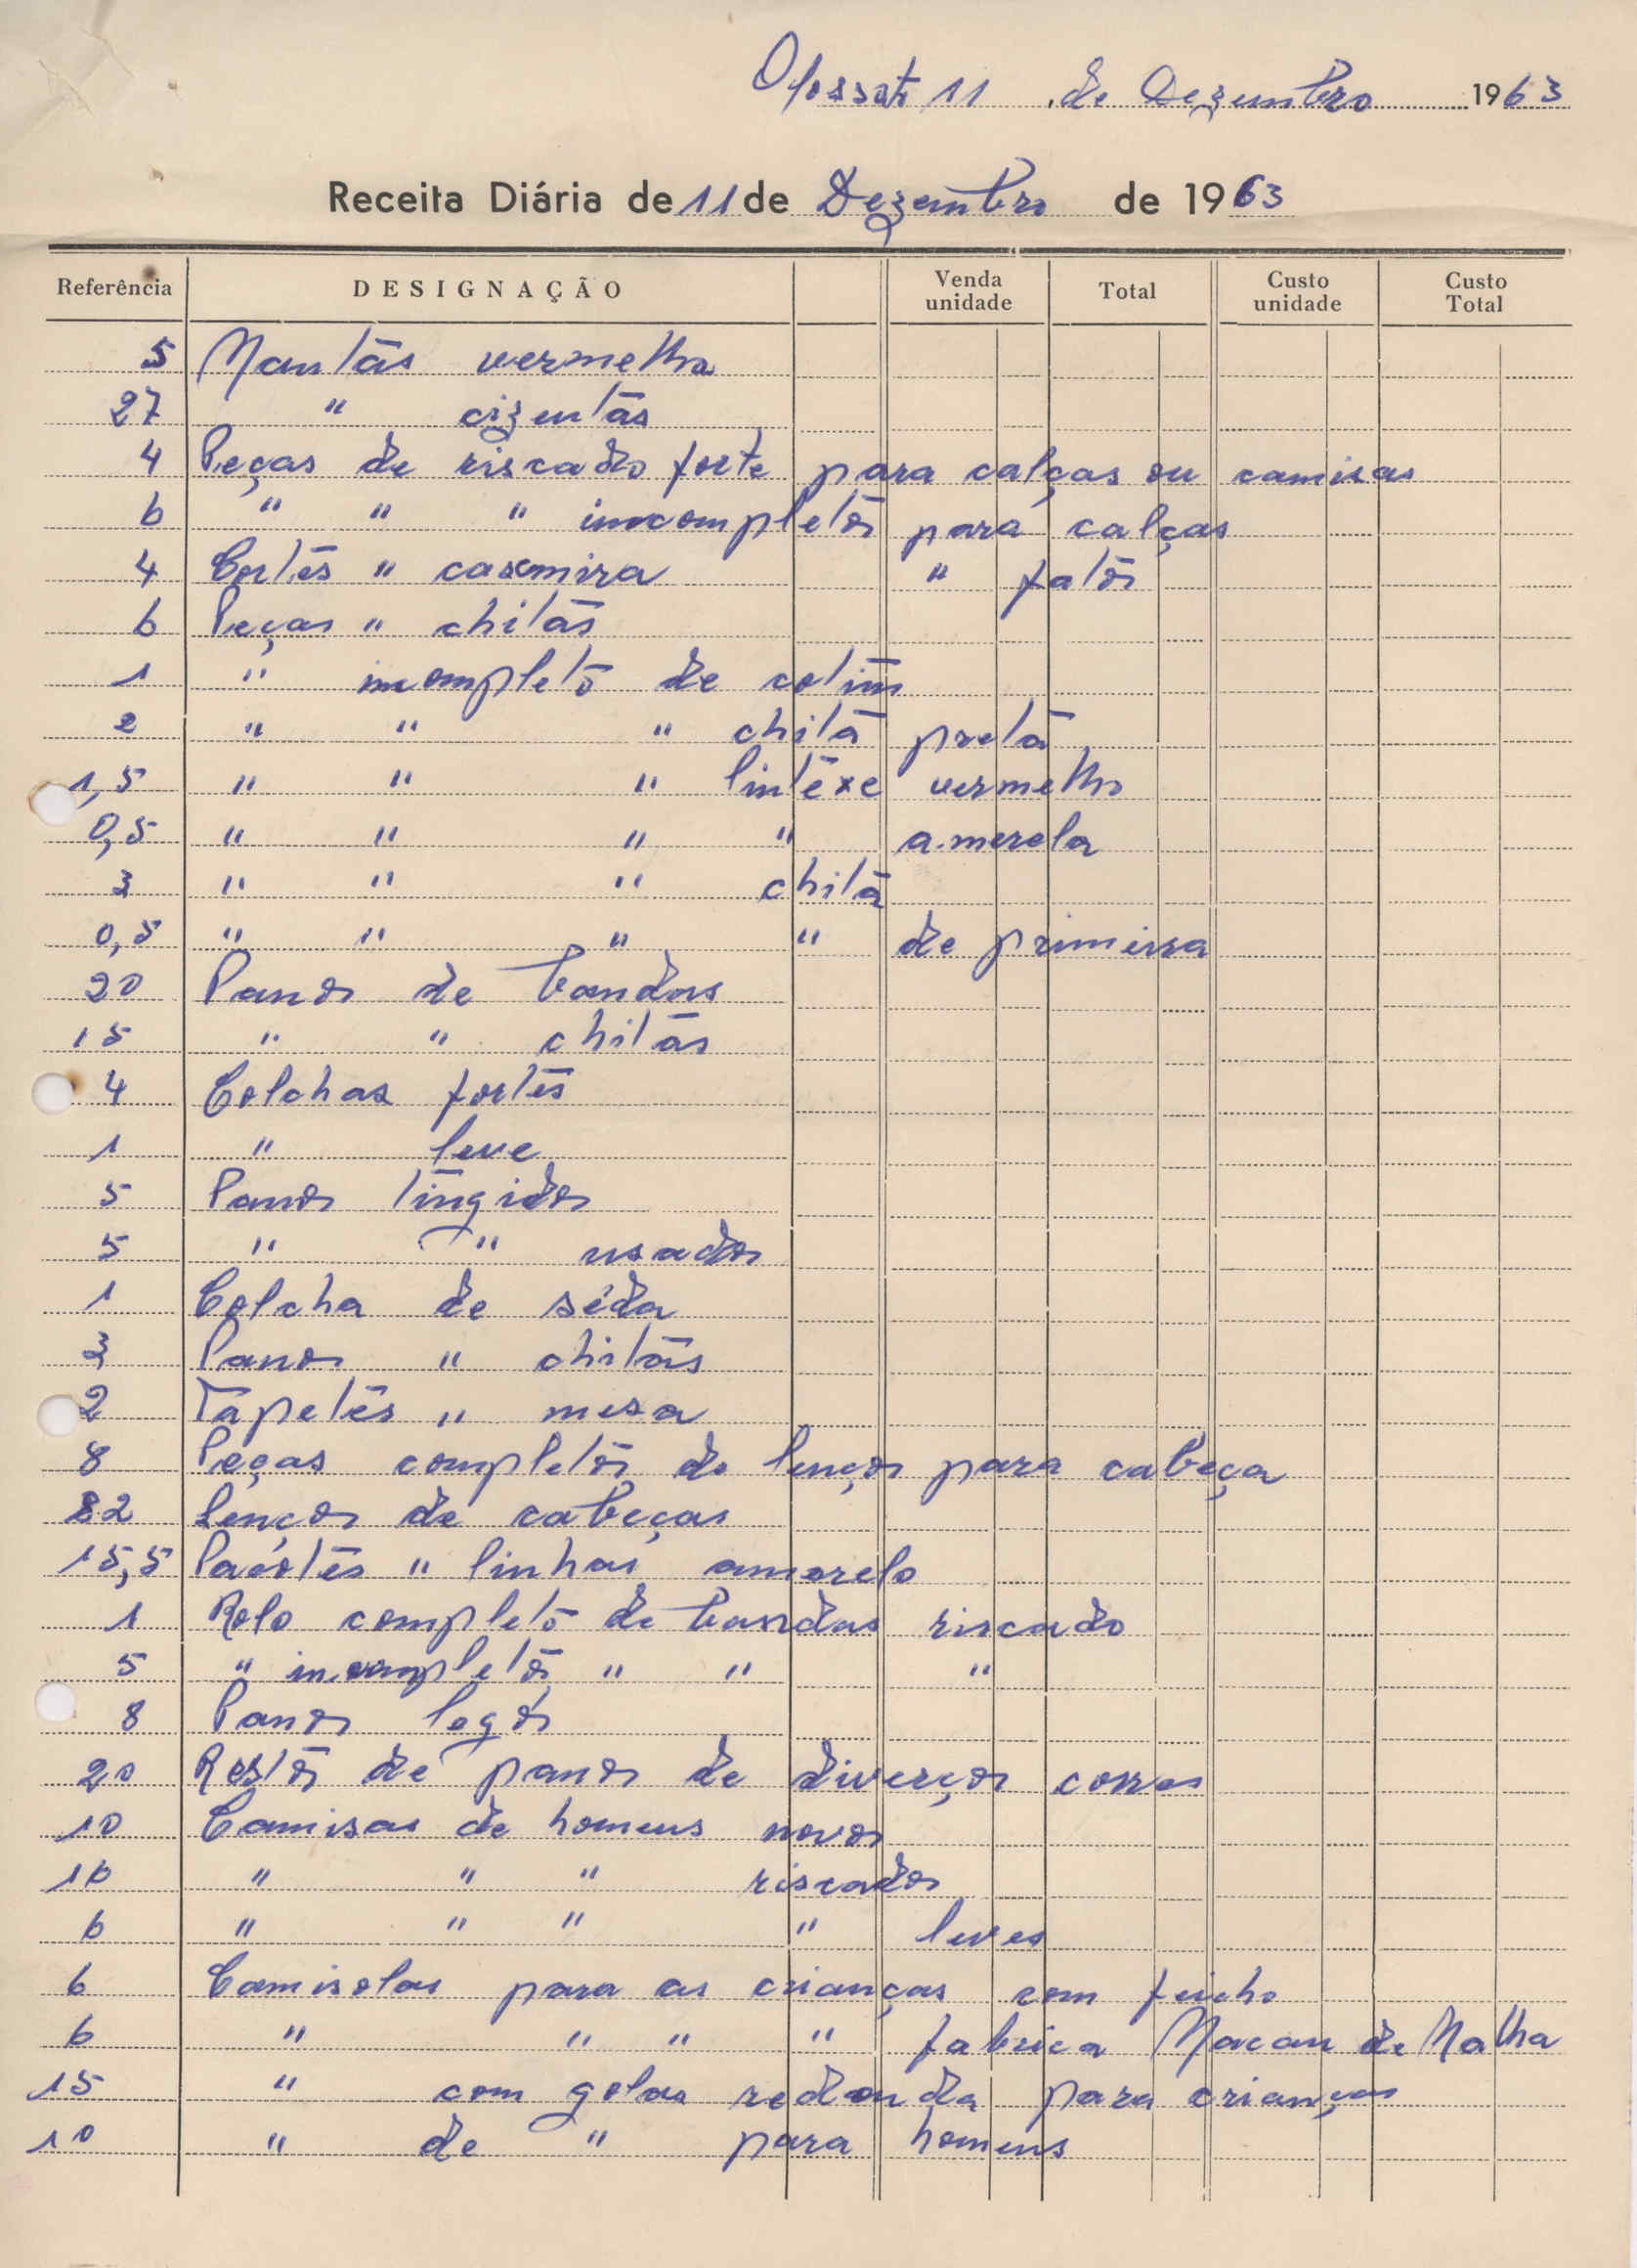 Olossato 11 de Dezembro 1963
Receita Diária de 11 de Dezembro de 1963
Referência DESIGNAÇÃO Venda unidade Total Custo unidade Custo Total
5 Mantas vermelha
27 " cizentas
4 Peças de riscado forte para calças ou camisas
6 " " " incompletos para calças
4 Cortes " casemira " fatos
6 Peças " chitas
1 " incompleto de cotim
2 " " " chita preta
1,5 " " " lintexe vermelho
0,5 " " " " amerela
3 " " " chita
0,5 " " " " de primeira
20 Panos de bandas
15 " " chitas
4 Colchas fortes
1 " leve
5 Panos tingidos
5 " " usados
1 Colcha de sêda
3 Panos " chitas
2 Tapetes " mesa
8 Peças completos de lenços para cabeça
82 Lenços de cabeças
15,5 Pacotes " linhas amarelo
1 Rolo completo de bandas riscado
5 " incompletos " " "
8 Panos legós
20 Restos de panos de diverços corres
10 Camisas de homens novos
16 " " " riscados
6 " " " " leves
6 Camisolas para as crianças com feicho
6 " " " " fabrica Macau de Malha
15 " com golas redonda para crianças
10 " de " para homens